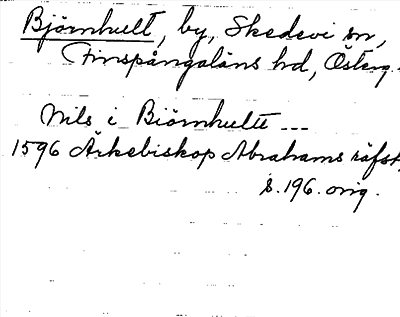 Björnhult, by, Skedevi sn,
Finspångaläns hd, Österg.
Nils i Biörnhullt ---
1596 Ärkebiskop Abrahams räfst,
s. 196. orig.